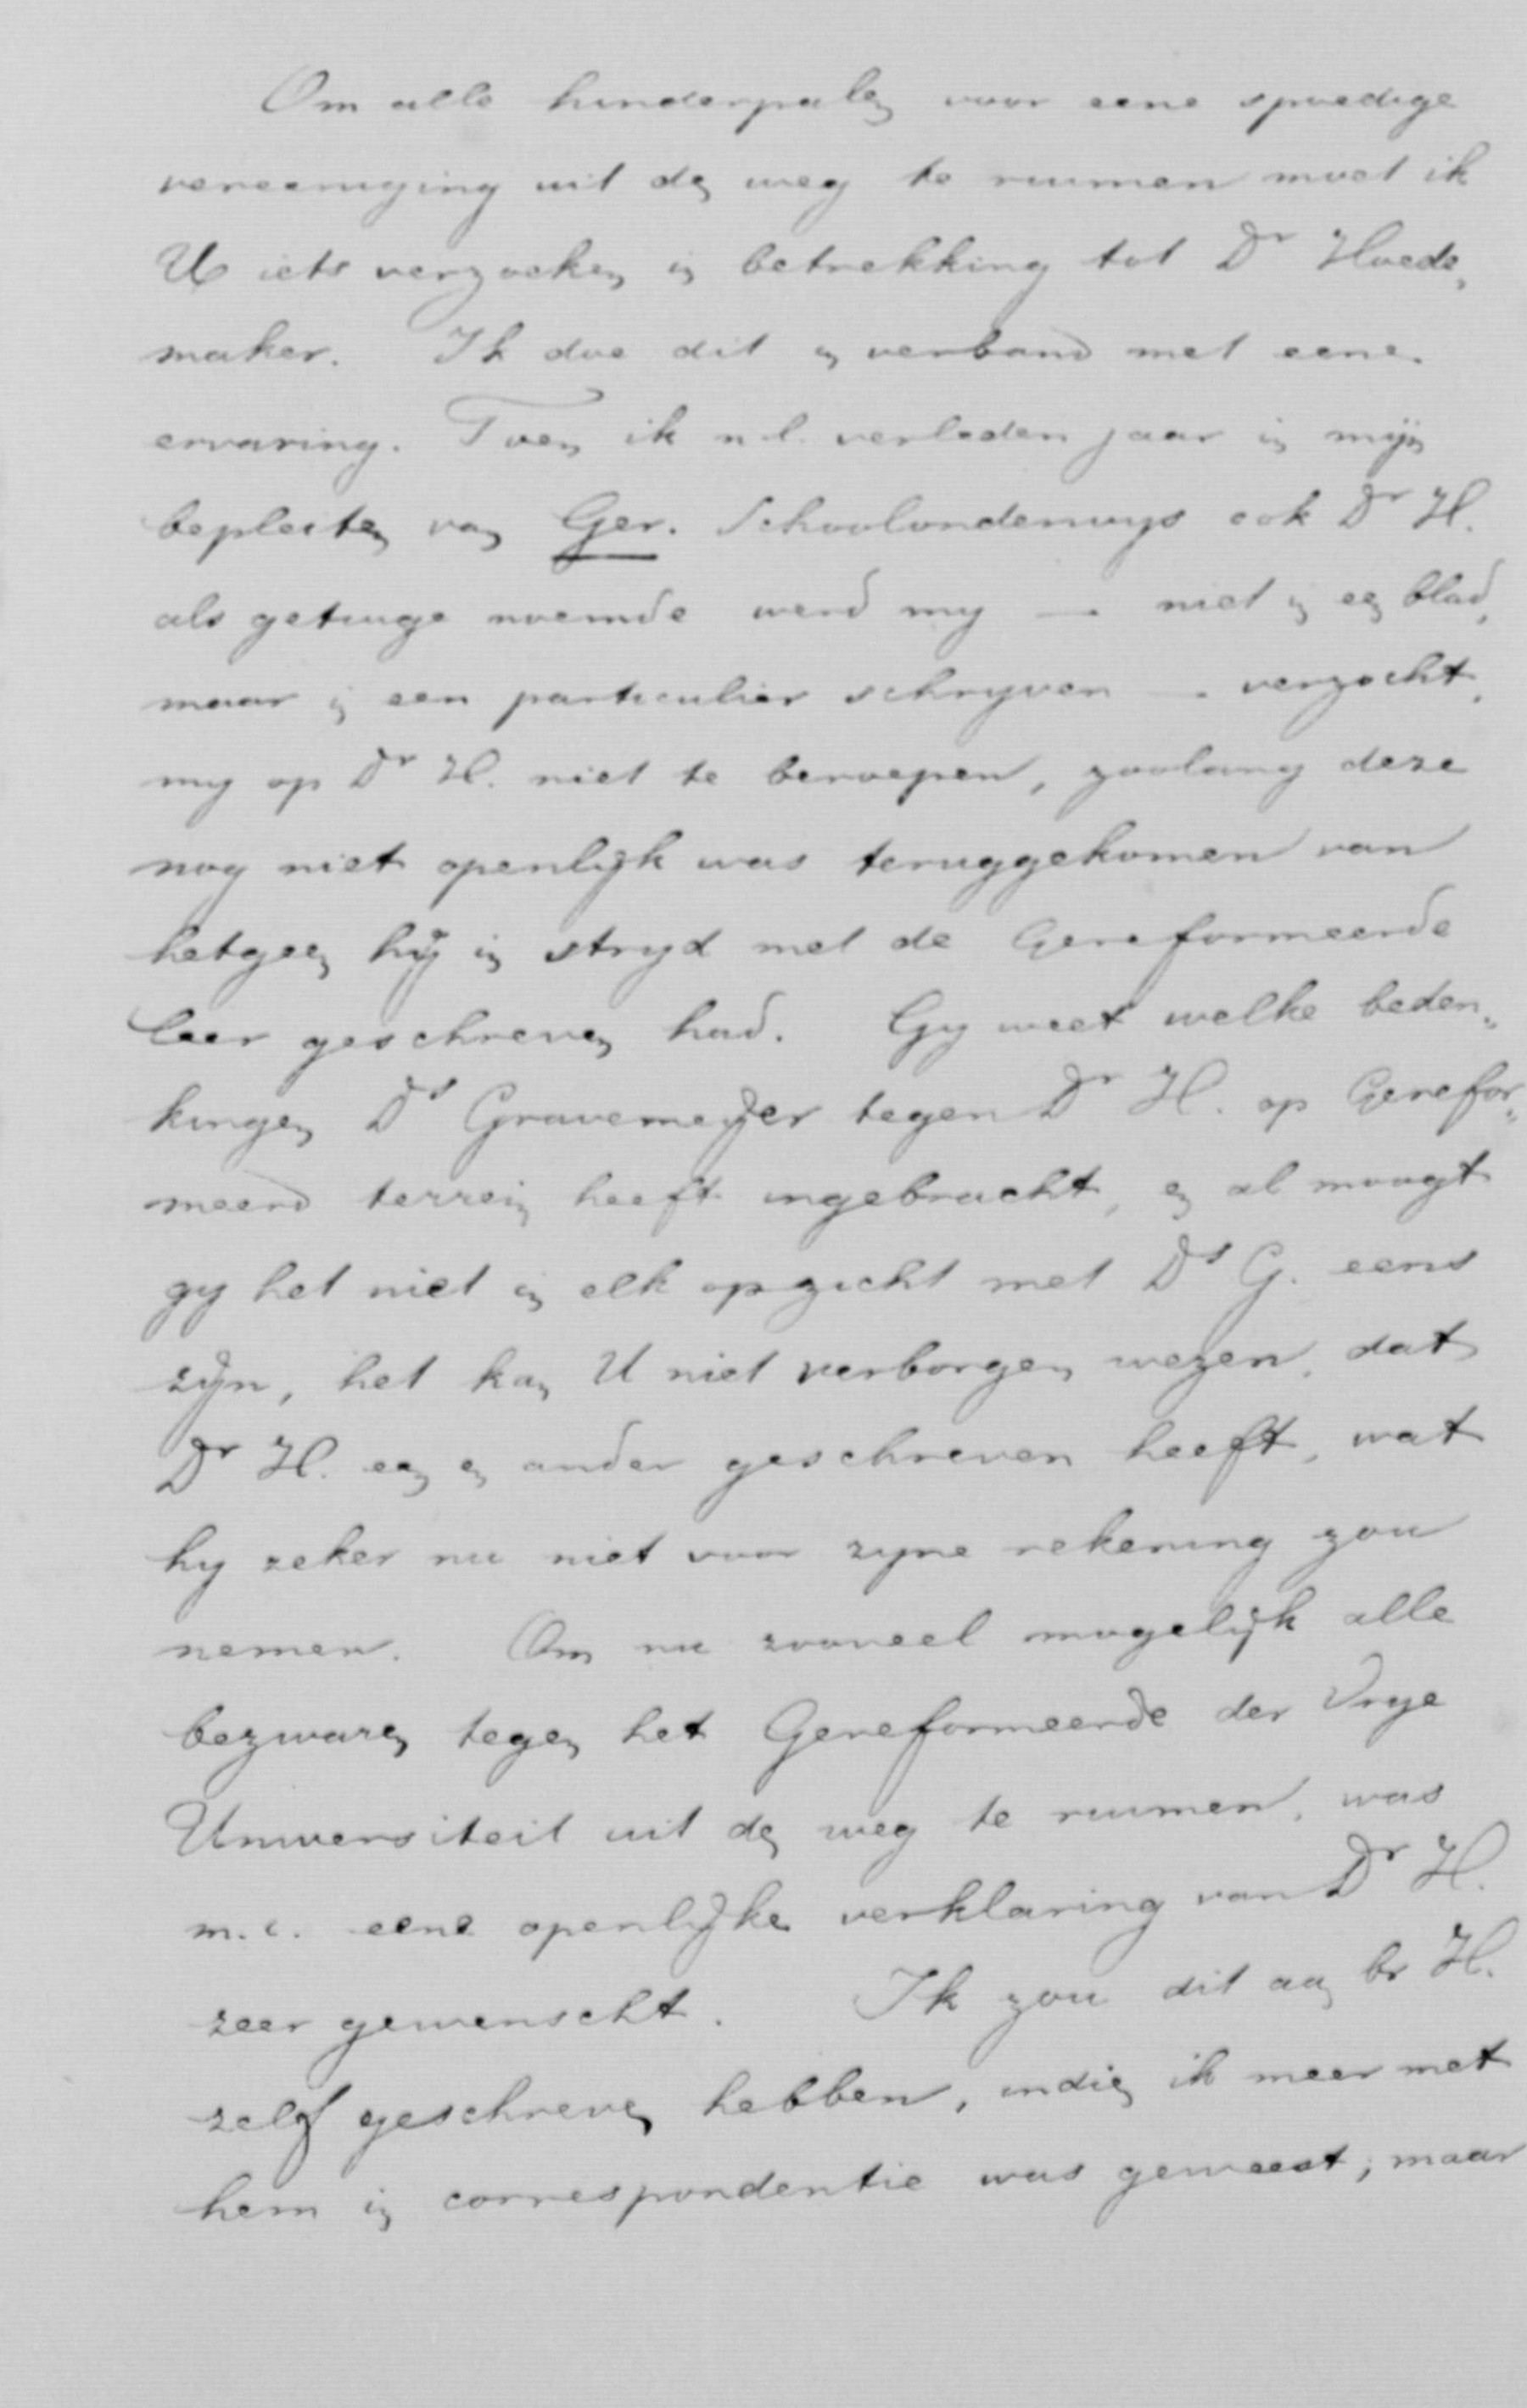 Om alle hinderpalen voor eene spoedige
vereeniging uit den weg te ruimen moet ik
U iets verzoeken in betrekking tot Dr Hoede„
maker. Ik doe dit in verband met eene
ervaring. Toen ik n.l. verleden jaar in mijn
bepleiten van Ger. Schoolonderwijs ook Dr H.
als getuige noemde werd mij — niet in een blad,
maar in een particulier schrijven - verzocht,
mij op Dr H. niet te beroepen, zoolang deze
nog niet openlijk was teruggekomen van
hetgeen hij in strijd met de Gereformeerde
leer geschreven had. Gij weet welke beden„
kingen Ds Gravemeijer tegen Dr H. op Gerefor„
meerd terrein heeft ingebracht, en al moogt
gij het niet in elk opzicht met Ds G. eens
zijn, het kan U niet verborgen wezen, dat
Dr H. een en ander geschreven heeft, wat
hij zeker nu niet voor zijne rekening zou
nemen. Om nu zooveel mogelijk alle
bezwaren tegen het Gereformeerde der Vrije
Universiteit uit den weg te ruimen, was
m.i. eene openlijke verklaring van Dr H.
zeer gewenscht. Ik zou dit aan br H.
zelf geschreven hebben, indien ik meer met
hem in correspondentie was geweest; maar